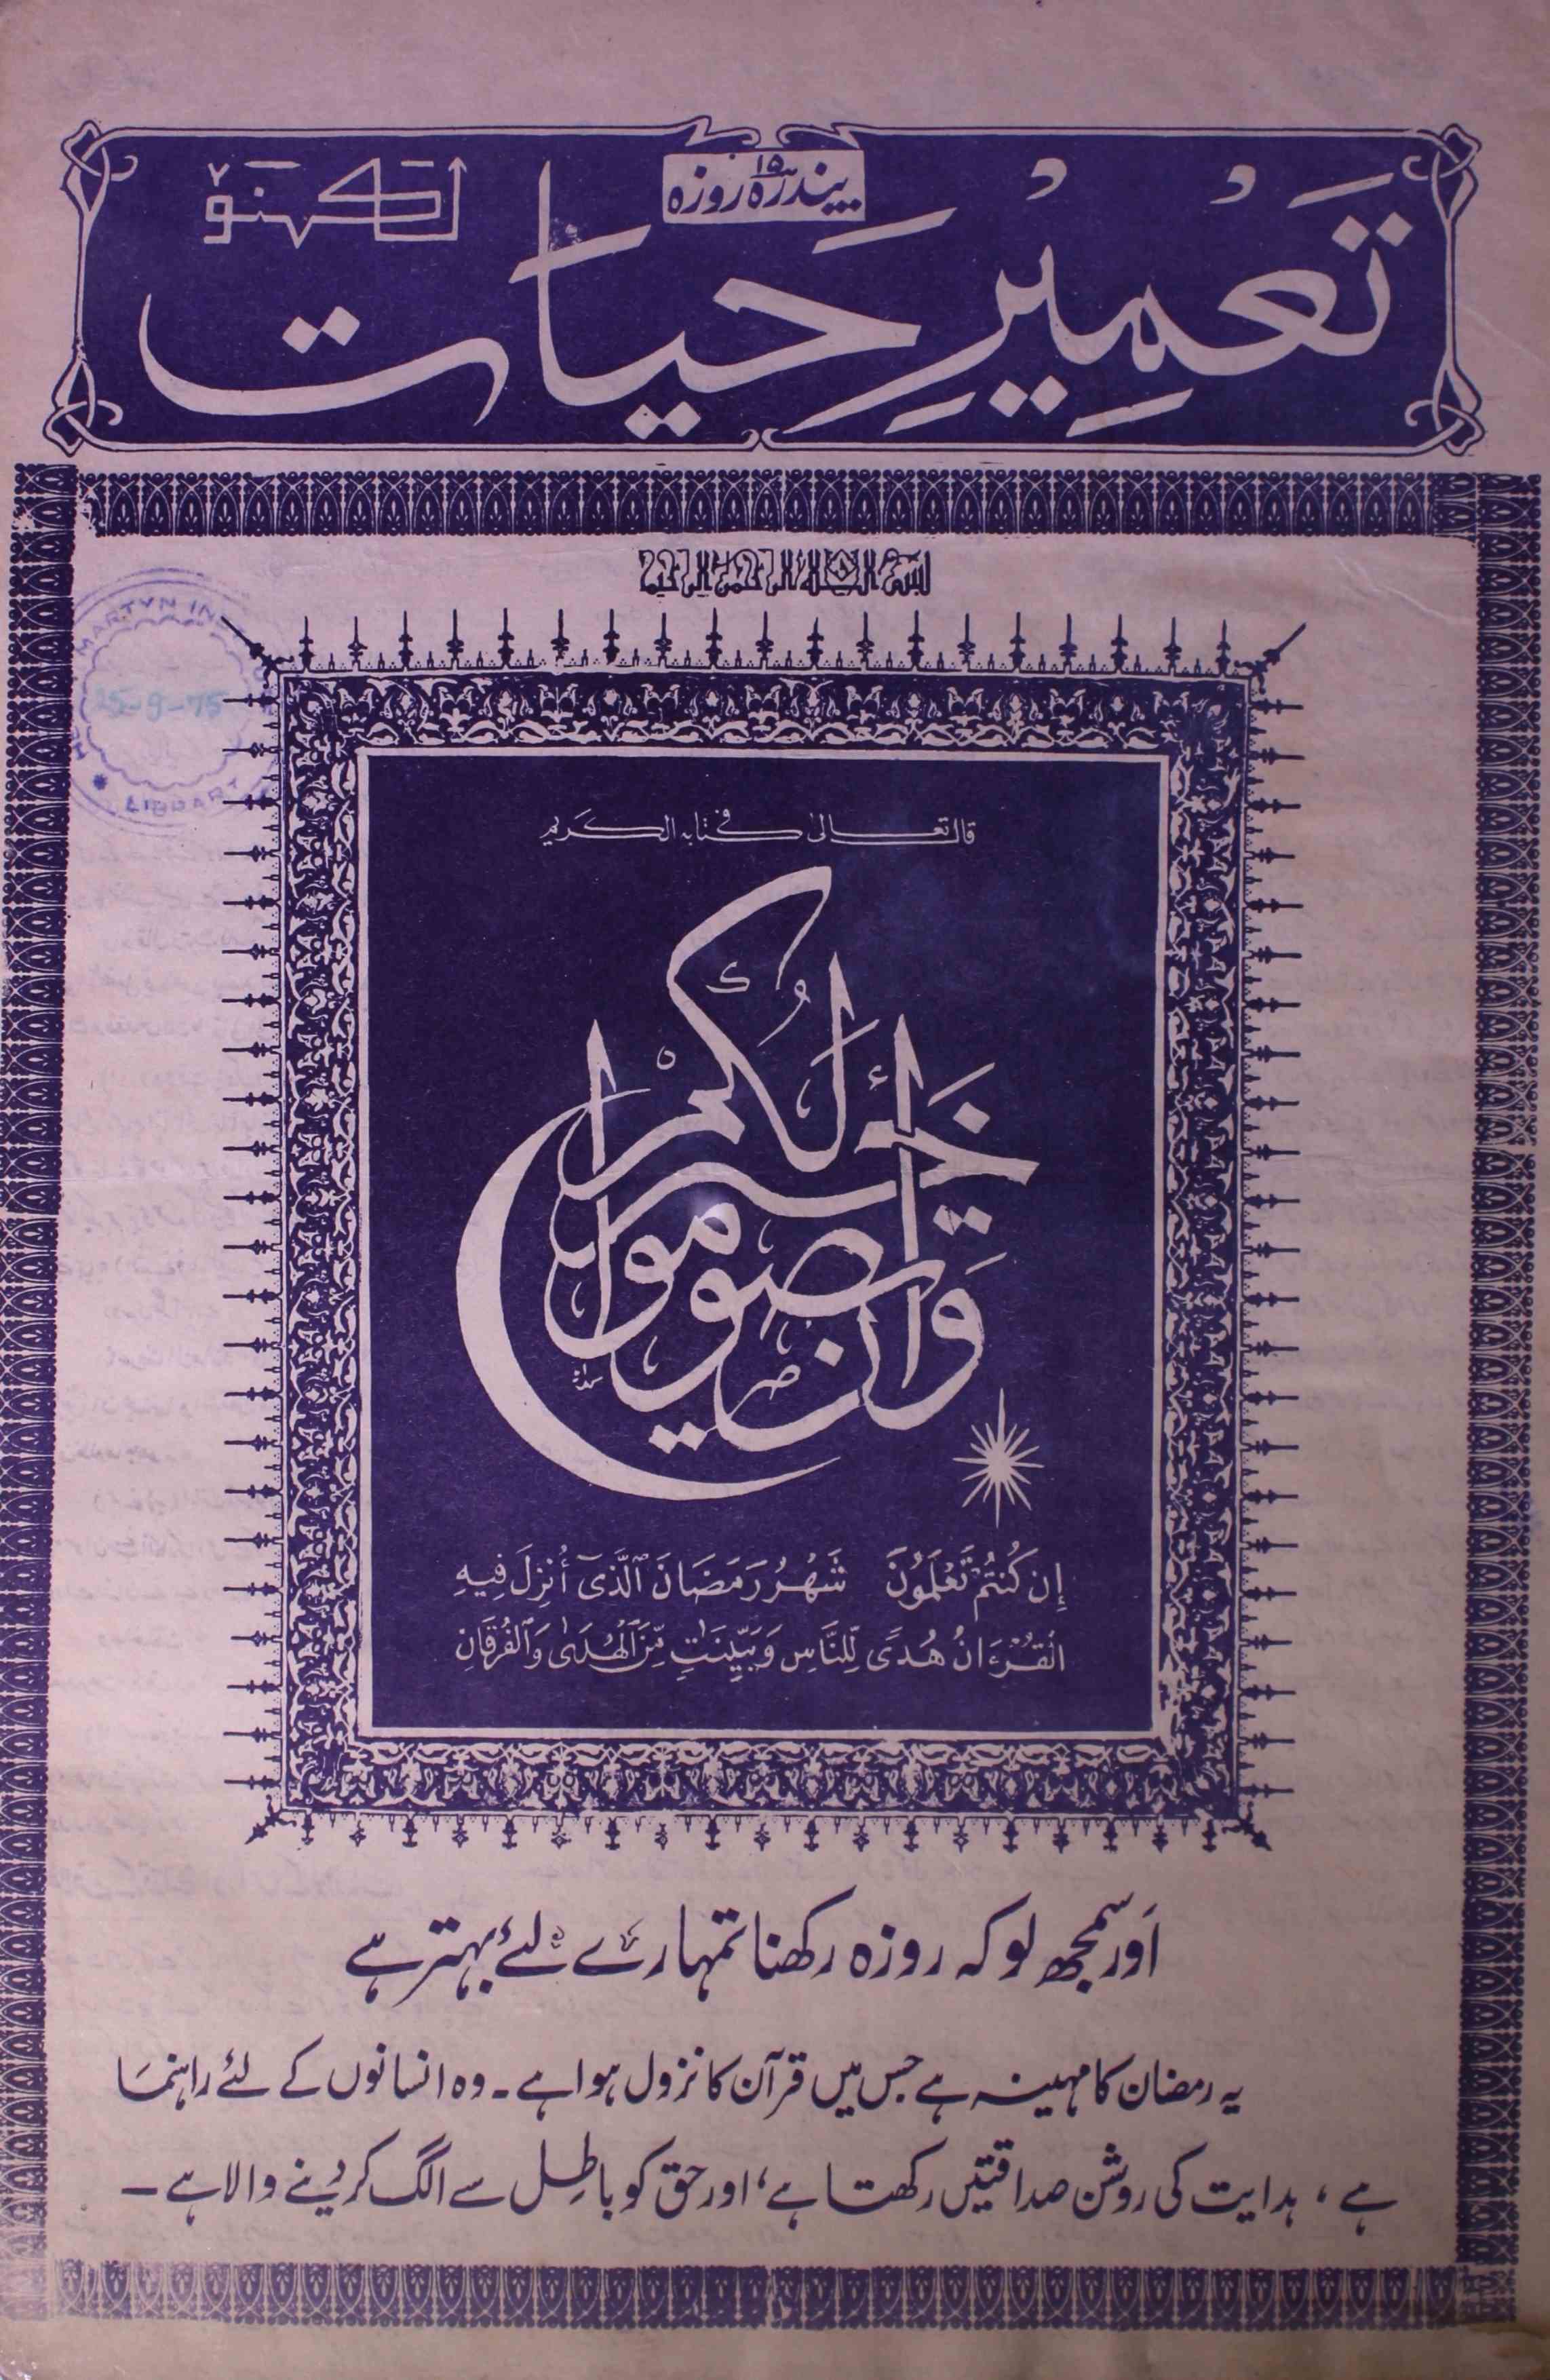 پندرہ ۱۵ روزہ
لکھنؤ
تَعْمِیْرِ حَیات
بسم الله الرحمن الرحيم
MARTYN IN
25-9-75
LIBRARY
قال تعالى في كتابه الكريم
وَأَن تَصُومُوا خَيْرٌ لَّكُمْ
إِن كُنتُمْ تَعْلَمُونَ شَهْرُ رَمَضَانَ ٱلَّذِىٓ أُنزِلَ فِيهِ
ٱلْقُرْءَانُ هُدًى لِّلنَّاسِ وَبَيِّنَٰتٍ مِّنَ ٱلْهُدَىٰ وَٱلْفُرْقَانِ
اَور سمجھ لو کہ روزہ رکھنا تمہارے لیۓ بہتر ہے
یہ رمضان کا مہینہ ہے جس میں قرآن کا نزول ہوا ہے ۔ وہ انسانوں کے لئے راہنمَا
ہے ، ہدایت کی روشن صداقتیں رکھتا ہے ، اور حق کو باطِل سے الگ کر دینے والا ہے ۔